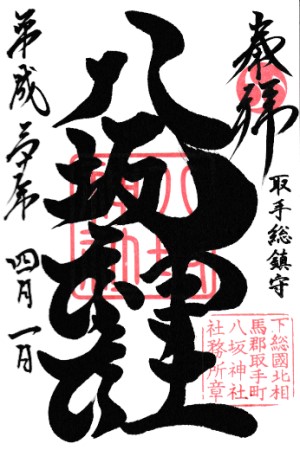 奉拝
取手総鎮守
八坂神社
平成三十年 四月一日
下総國北相
馬郡取手町
八坂神社
社務所章